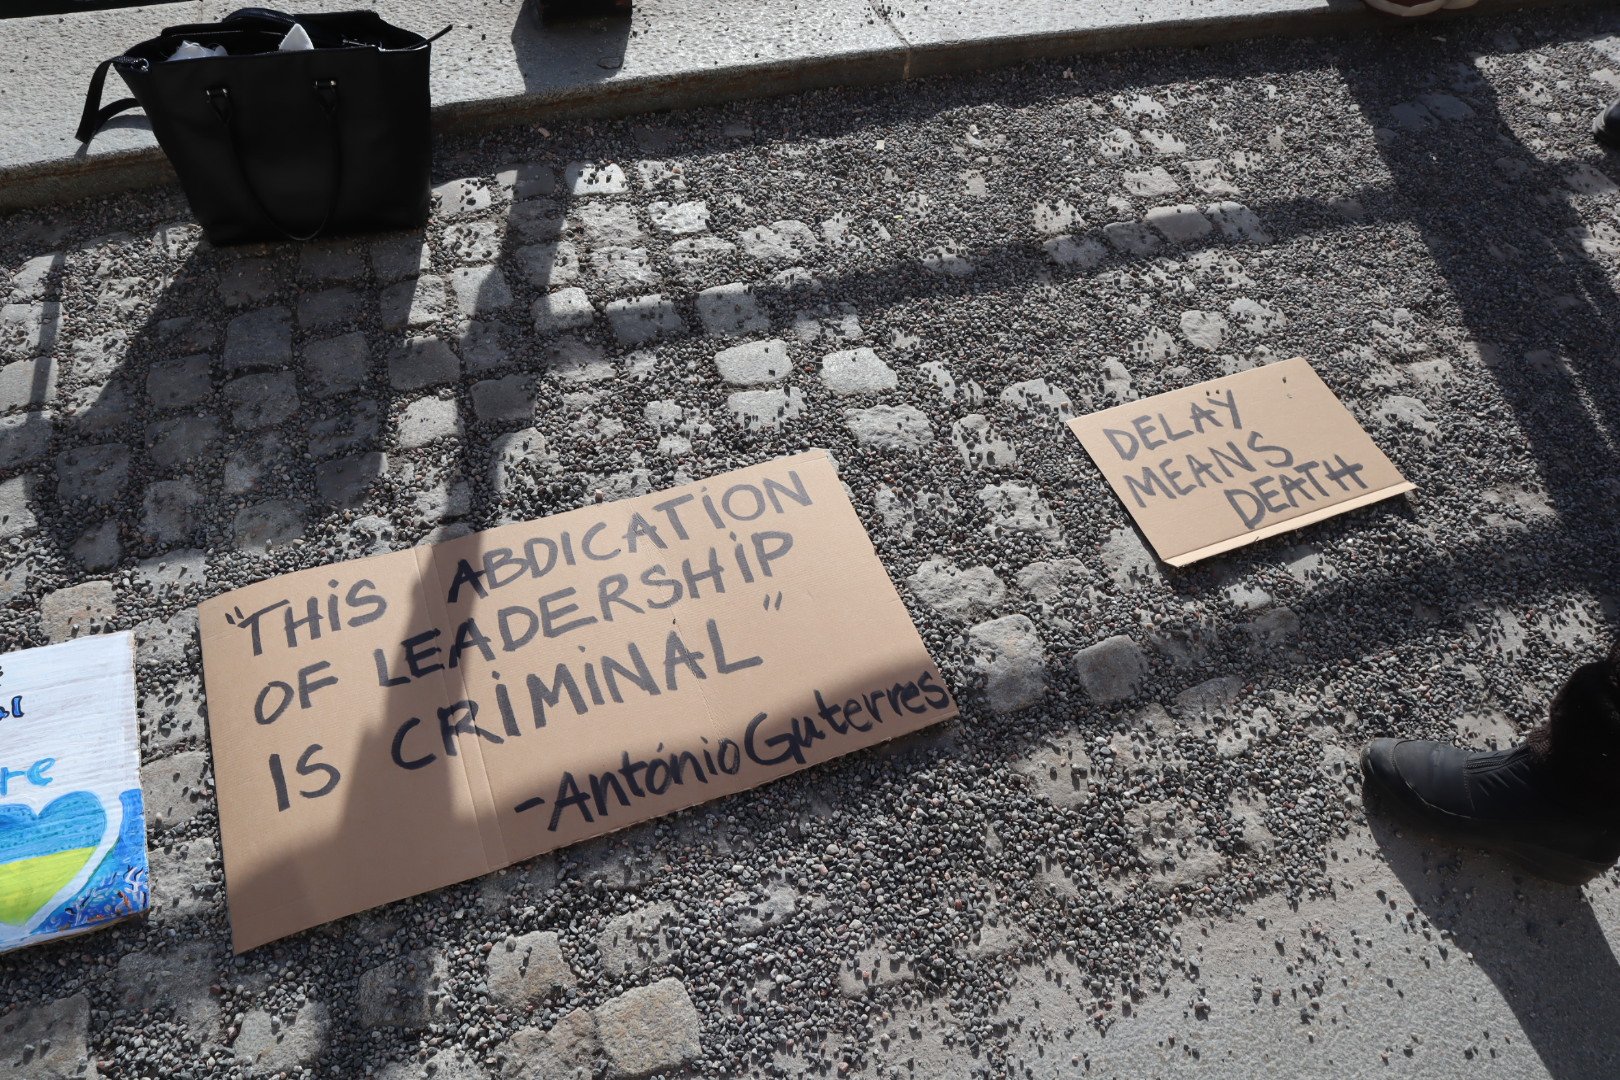 "THIS ABDICATION
OF LEADERSHIP
IS CRIMINAL"
-António Guterres
DELAY
MEANS
DEATH